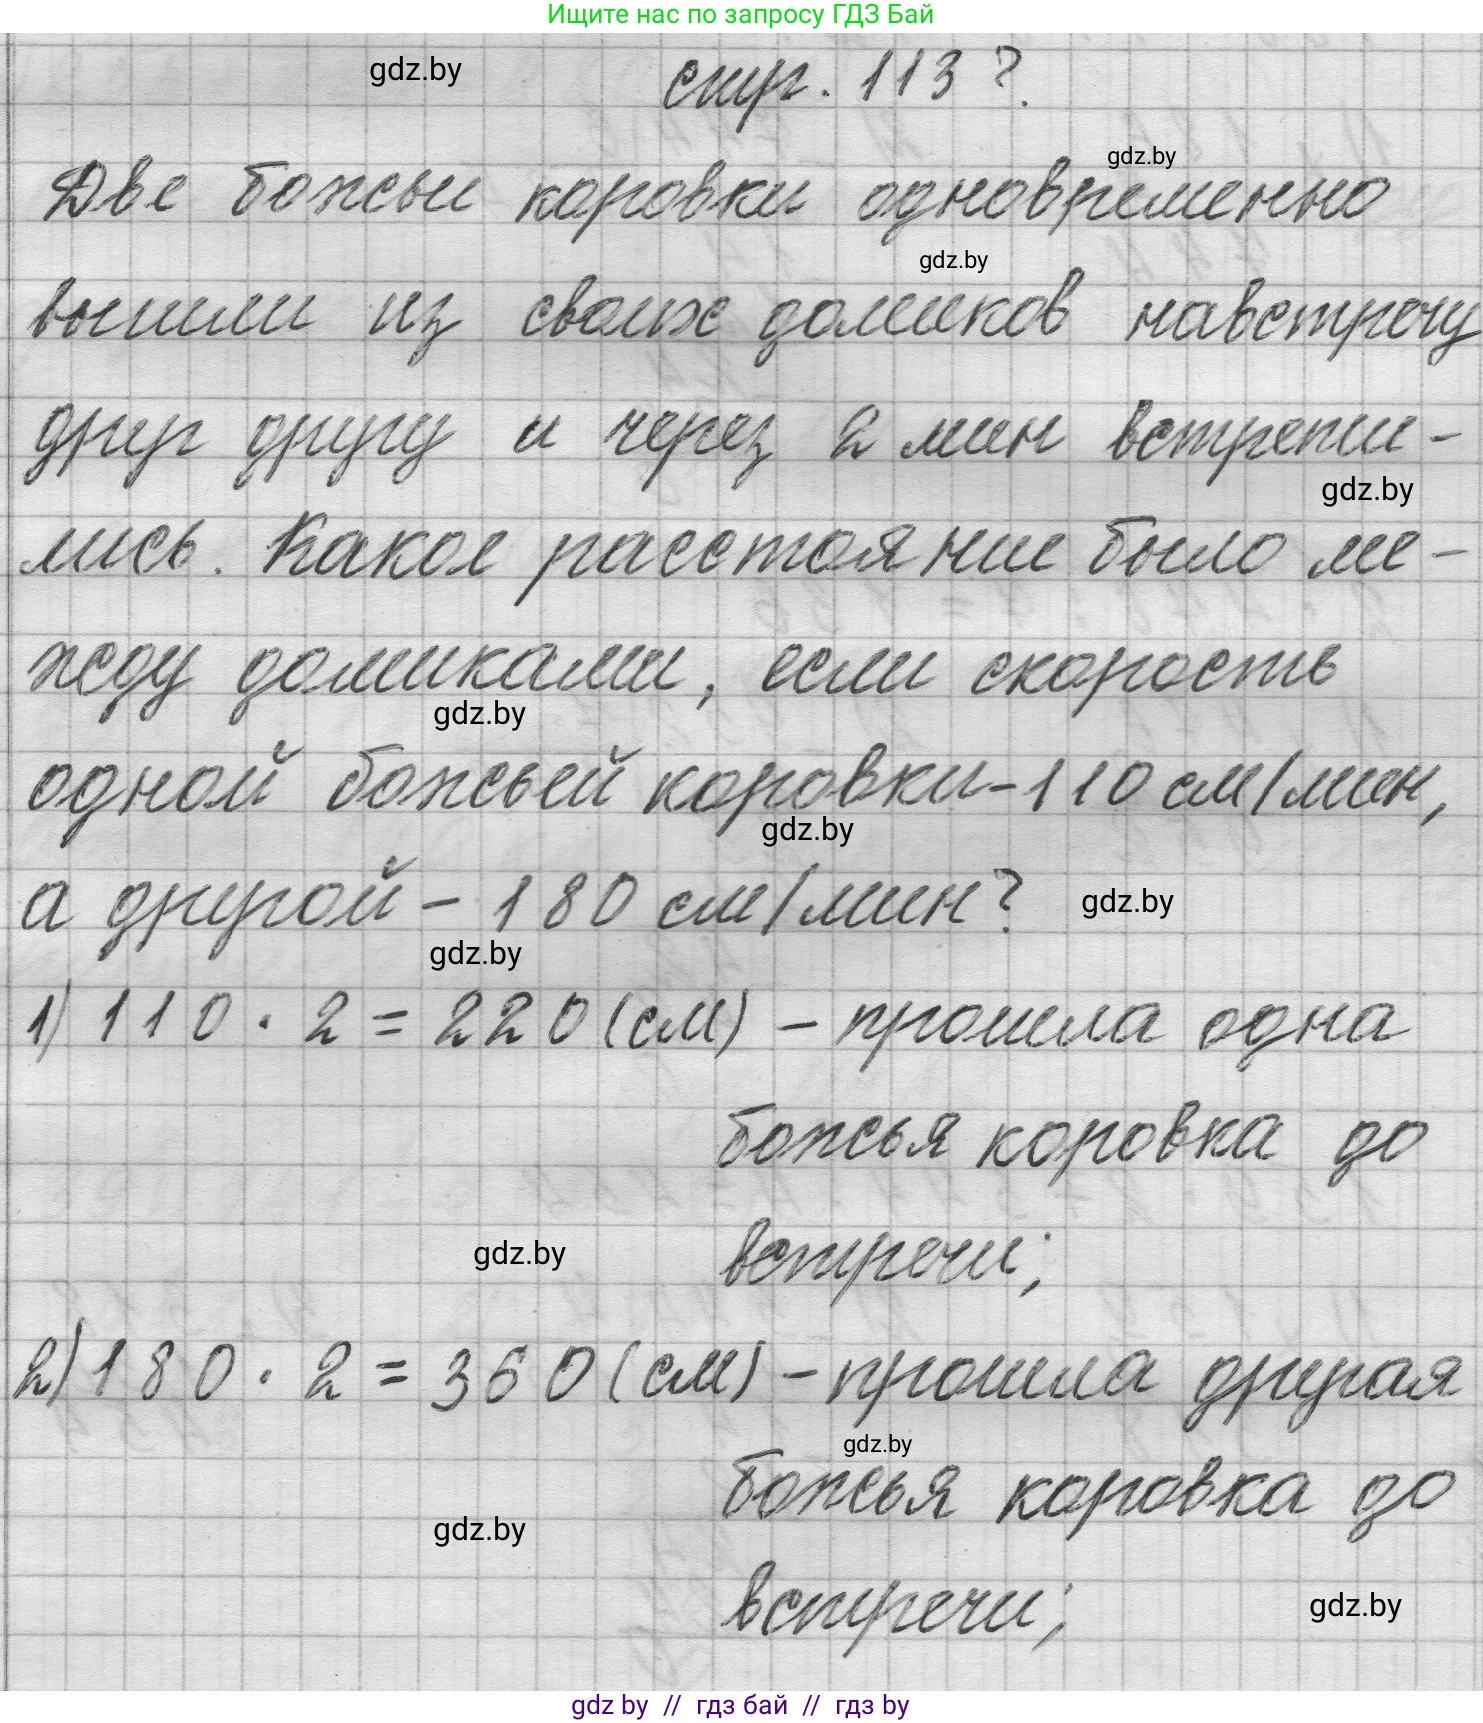 Ищите нас по запросу ГДЗ Бай
gdz.by
стр. 113 ?.
gdz.by
Две божьи коровки одновременно
gdz.by
вышли из своих домиков навстречу
друг другу и через 2 мин встрети-
gdz.by
лись. Какое расстояние было ме-
жду домиками, если скорость
gdz.by
одной божьей коровки - 110 см/мин,
gdz.by
а другой - 180 см/мин?
gdz.by
gdz.by
1) 110 · 2 = 220 (см) - прошла одна
божья коровка до
встречи;
gdz.by
2) 180 · 2 = 360 (см) - прошла другая
gdz.by
божья коровка до
gdz.by
встречи;
gdz.by
gdz by // гдз бай // гдз by